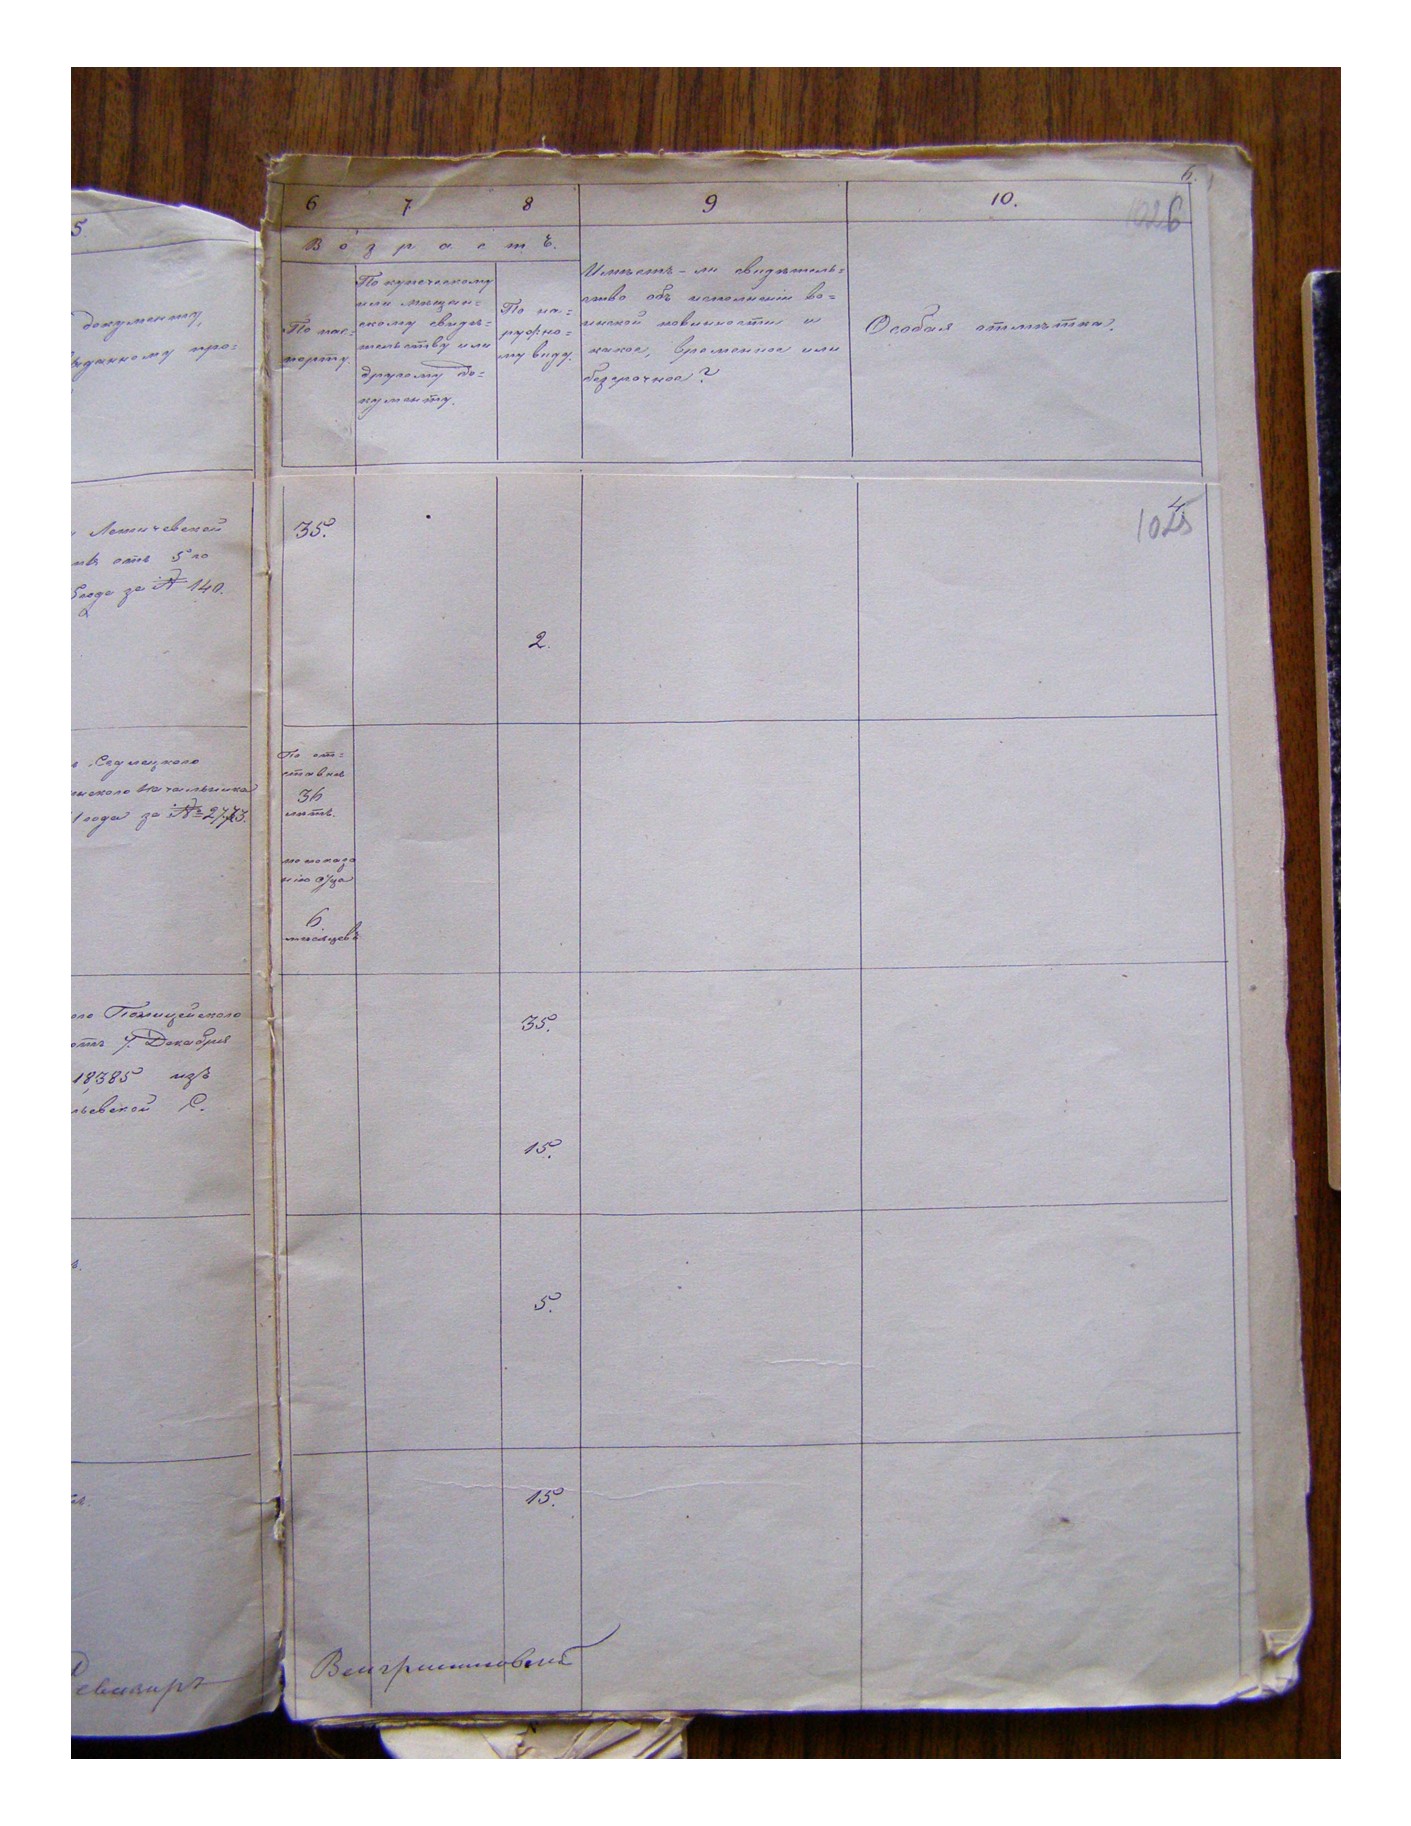 5
документу,
выданному про=
и Летичевской
отъ 5го
года за № 140.
Седлецкаго
инскаго Начальника
года за № 2773.
ого Полицейскаго
отъ 7. Декабря
18385 изъ
льевской С.
Ревизиръ
6 7 8 9 10.
6.
1026
Возрастъ.
По пас=
порту.
По купеческому
или мещан=
скому свидѣ=
тельству или
другому до=
кументу.
По на=
ружно=
му виду.
Имѣетъ-ли свидѣтель=
ство объ исполненіи во=
инской повинности и
какое, временное или
безсрочное?
Особая отмѣтка.
35.
4.
1025
2.
По от=
ставкѣ
36
лѣтъ.
по показа
нію отца
6
мѣсяцевъ
35.
15.
5.
15.